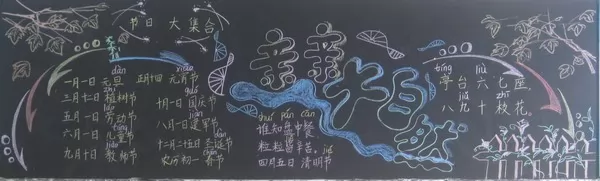 节日大集合
dàn
一月一日 元旦
zhí
三月十二日 植树节
五月一日 劳动节
tóng
六月一日 儿童节
jiào
九月十日 教师节
xiāo
正月十四 元宵节
guó
十月一日 国庆节
jiàn
八月一日 建军节
dàn
十二月二十五日 圣诞节
chūn
农历初一 春节
亲亲大自然
shuí pán cān
谁知盘中餐
粒粒皆辛苦。
jié
四月五日 清明节
tíng liù
亭台六七座,
jiǔ zhī
八九十枝花。